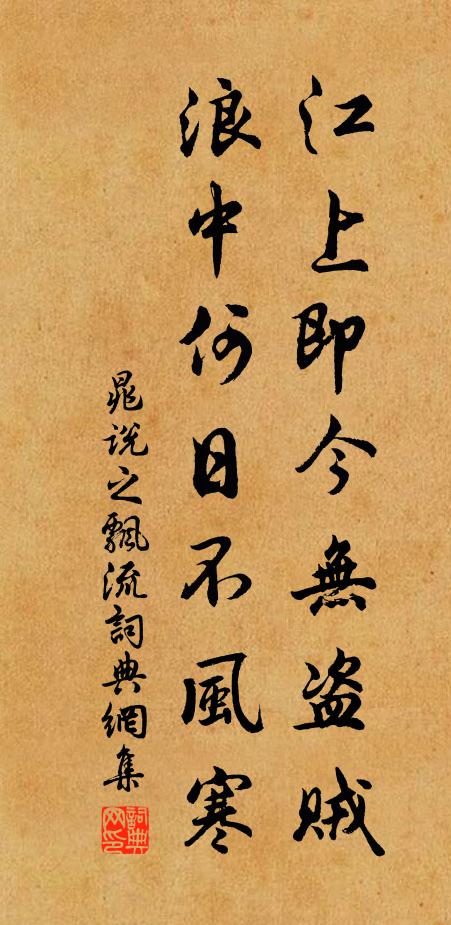 江上即今無盜賊
浪中何日不風寒
晁說之飄流詞典網集
詞典
网印